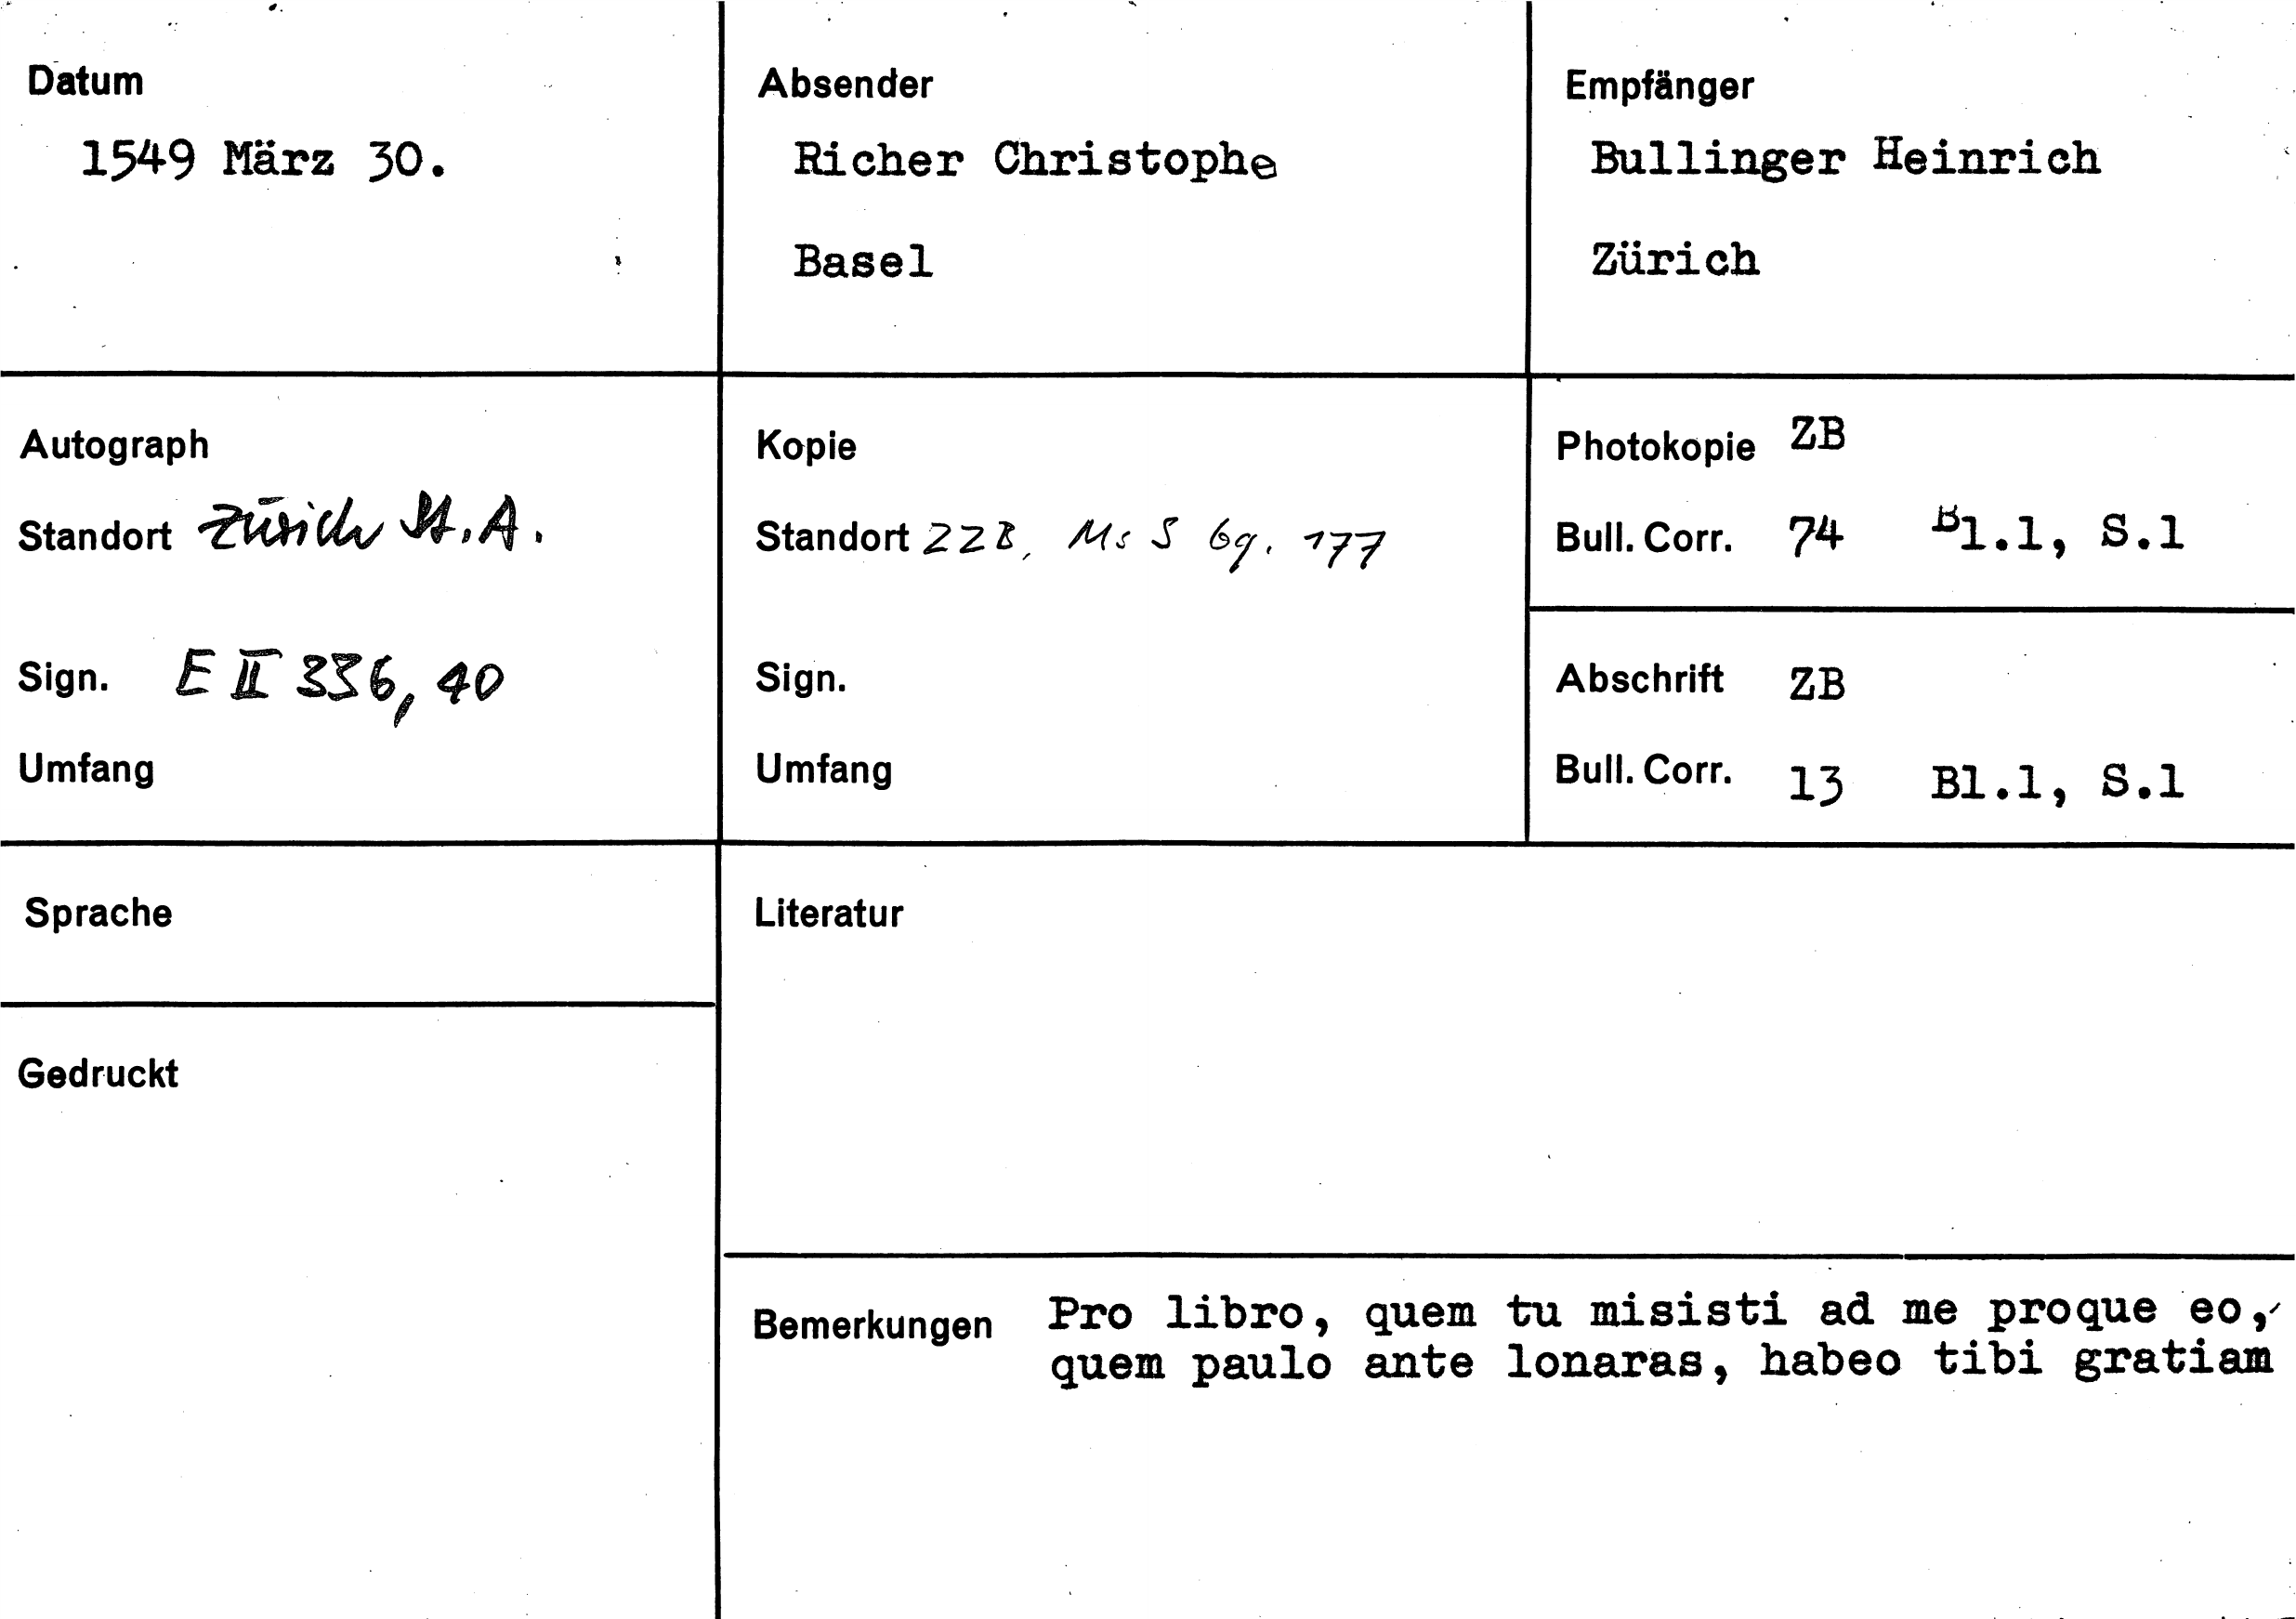 Datum
1549 März 30.
Absender
Richer Christophe
Basel
Empfänger
Bullinger Heinrich
Zürich
Autograph
Standort Zürich St.A.
Sign. E II 336, 40
Umfang
Kopie
Standort ZZB, Ms S 69. 177
Sign.
Umfang
Photokopie ZB
Bull. Corr. 74 Bl.1, S.1
Abschrift ZB
Bull. Corr. 13 Bl.1, S.1
Sprache
Gedruckt
Literatur
Bemerkungen Pro libro, quem tu misisti ad me proque eo,
quem paulo ante lonaras, habeo tibi gratiam